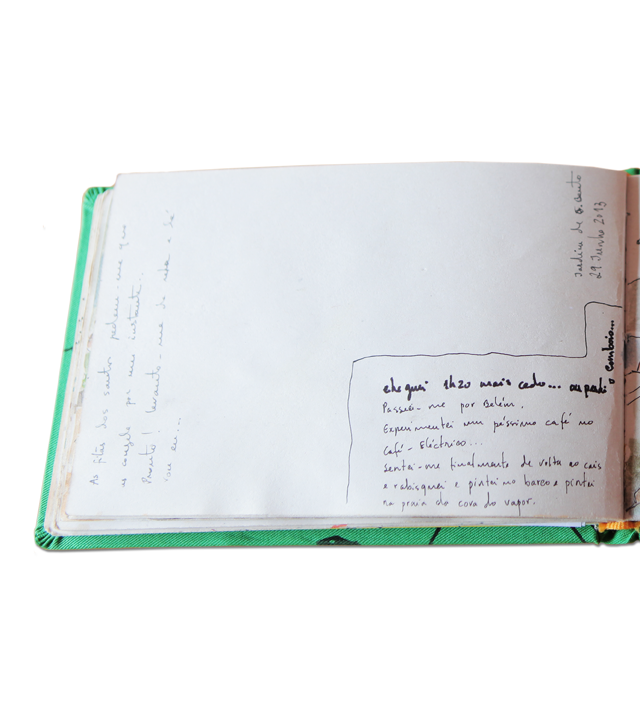 As fitas dos santos pedem-me que
as congele por uns instantes.
Pronto! levanto-me da relva e lá
Jardim de S. Bento
29 Junho 2013
cheguei 1h20 mais cedo... ou perdi
o comboio...
Passei-me por Belém.
Experimentei um péssimo café no
Café-Eléctrico...
Sentei-me finalmente de volta ao cais
e rabisquei e pintei no barco e pintei
na praia do cova do vapor.